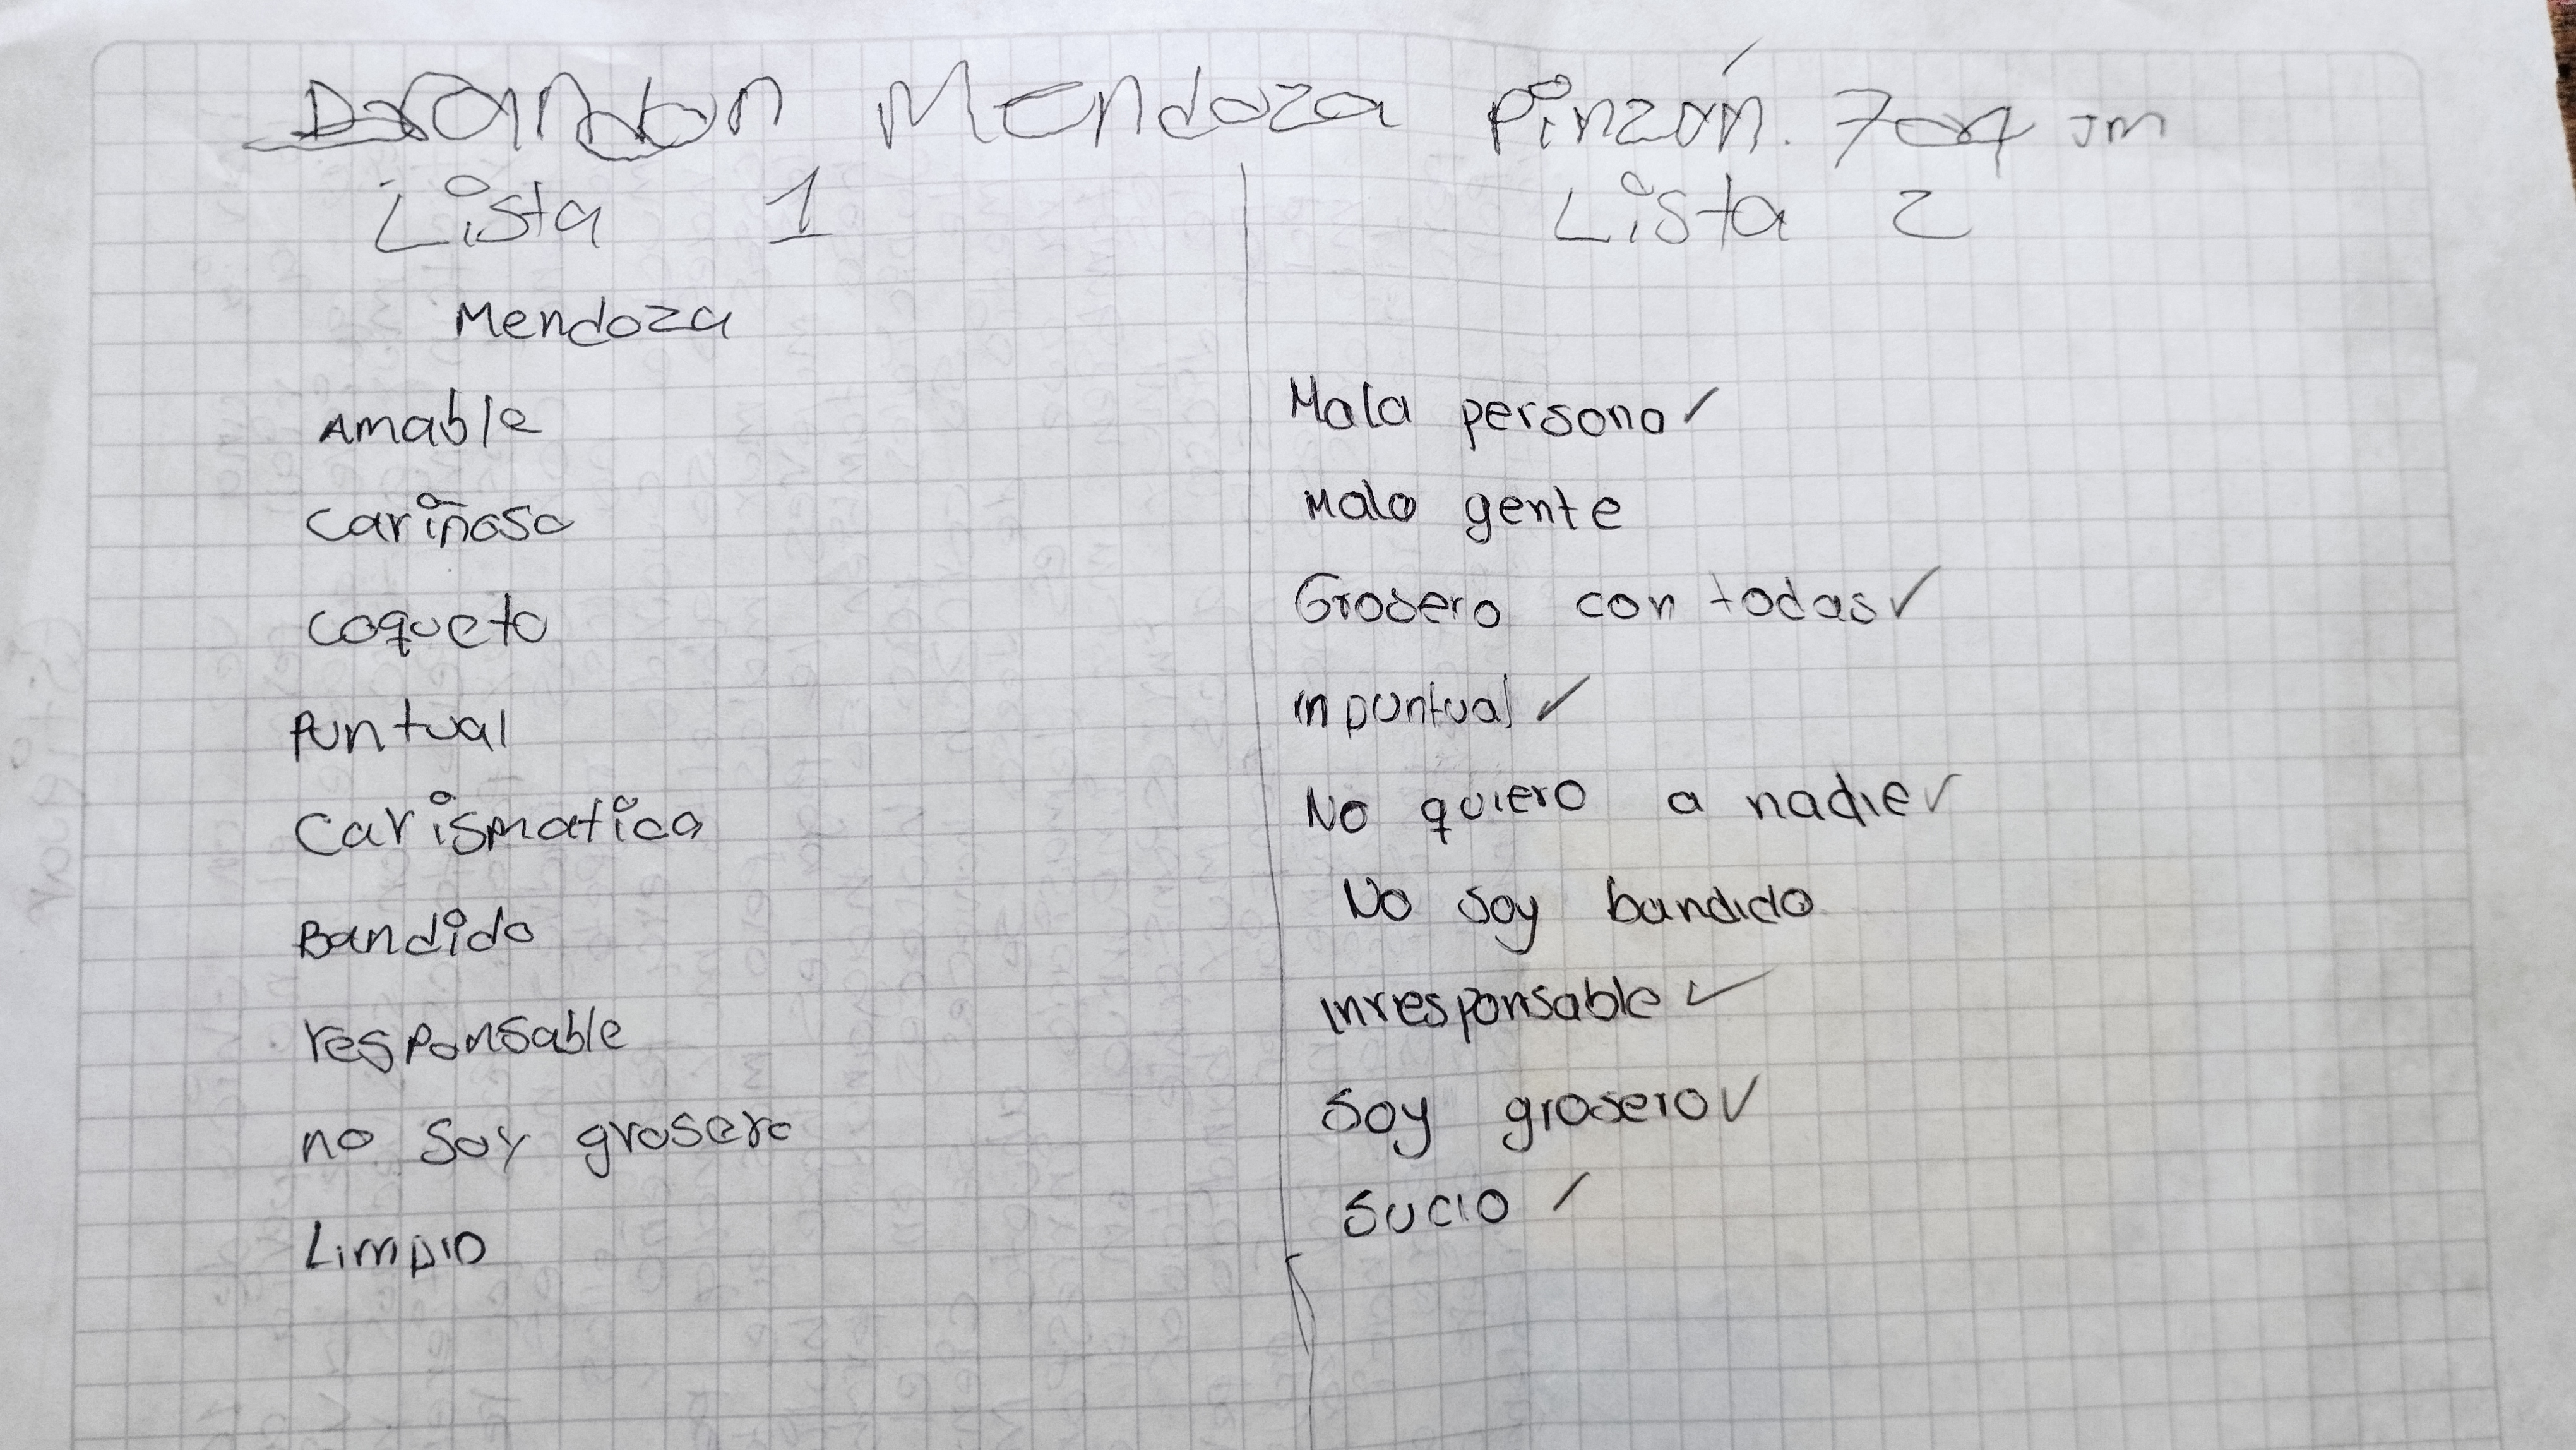 Brandon Mendoza Pinzón. 704 JM
Lista 1
Mendoza
Amable
cariñoso
coqueto
Puntual
Carismatico
Bandido
responsable
no soy grosero
Limpio
Lista 2
Mala persona ✓
Malo gente
Grosero con todas ✓
inpuntual ✓
No quiero a nadie ✓
No soy bandido
inresponsable ✓
Soy grosero ✓
Sucio ✓